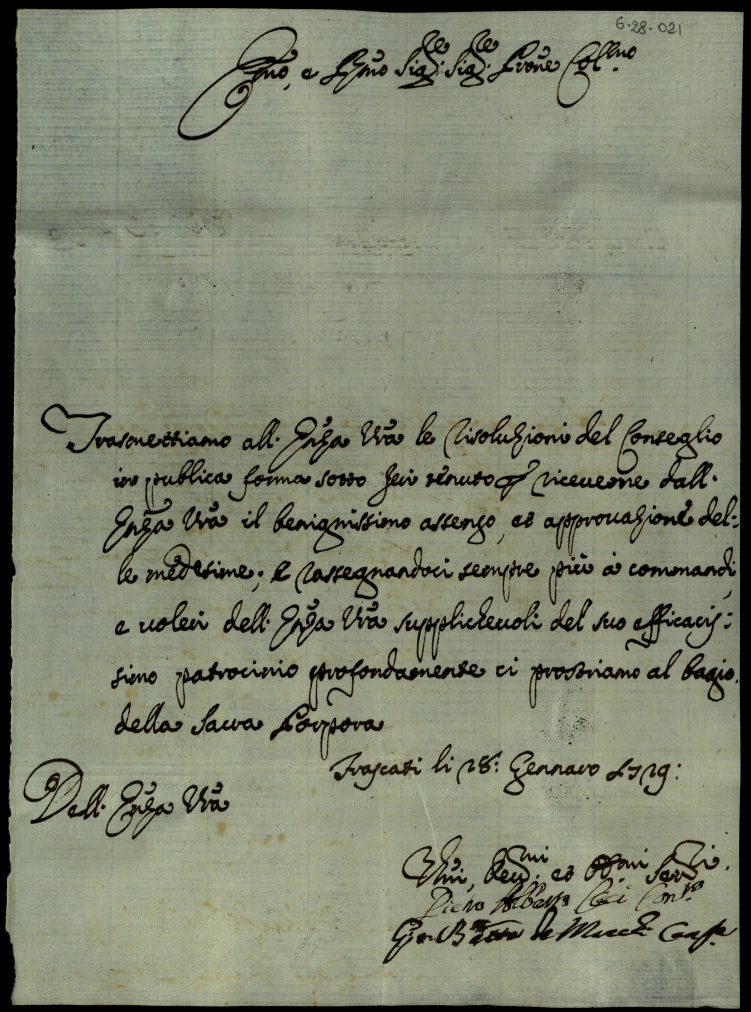 6-28-021
Emo, e Rmo Sigre: Sigre: Prone Collmo
Trasmettiamo all' Emza Vra le risoluzioni del Conseglio
in publica forma sotto hevi tenuto p riceverne dall'
Emza Vra il benignissimo assenso, et approvazione del=
le medesime; e rassegnandoci sempre più à commandi,
e voleri dell' Emza Vra supplichevoli del suo efficacis=
simo patrocinio profondamente ci prostriamo al bagio
della Sacra Porpora
Frascati li 28: Gennaro 1729:
Dell' Emza Vra
Umi, Devmi: et Obbmi Servi:
Pietro Alberto Conf
Gio: Batta de Conf